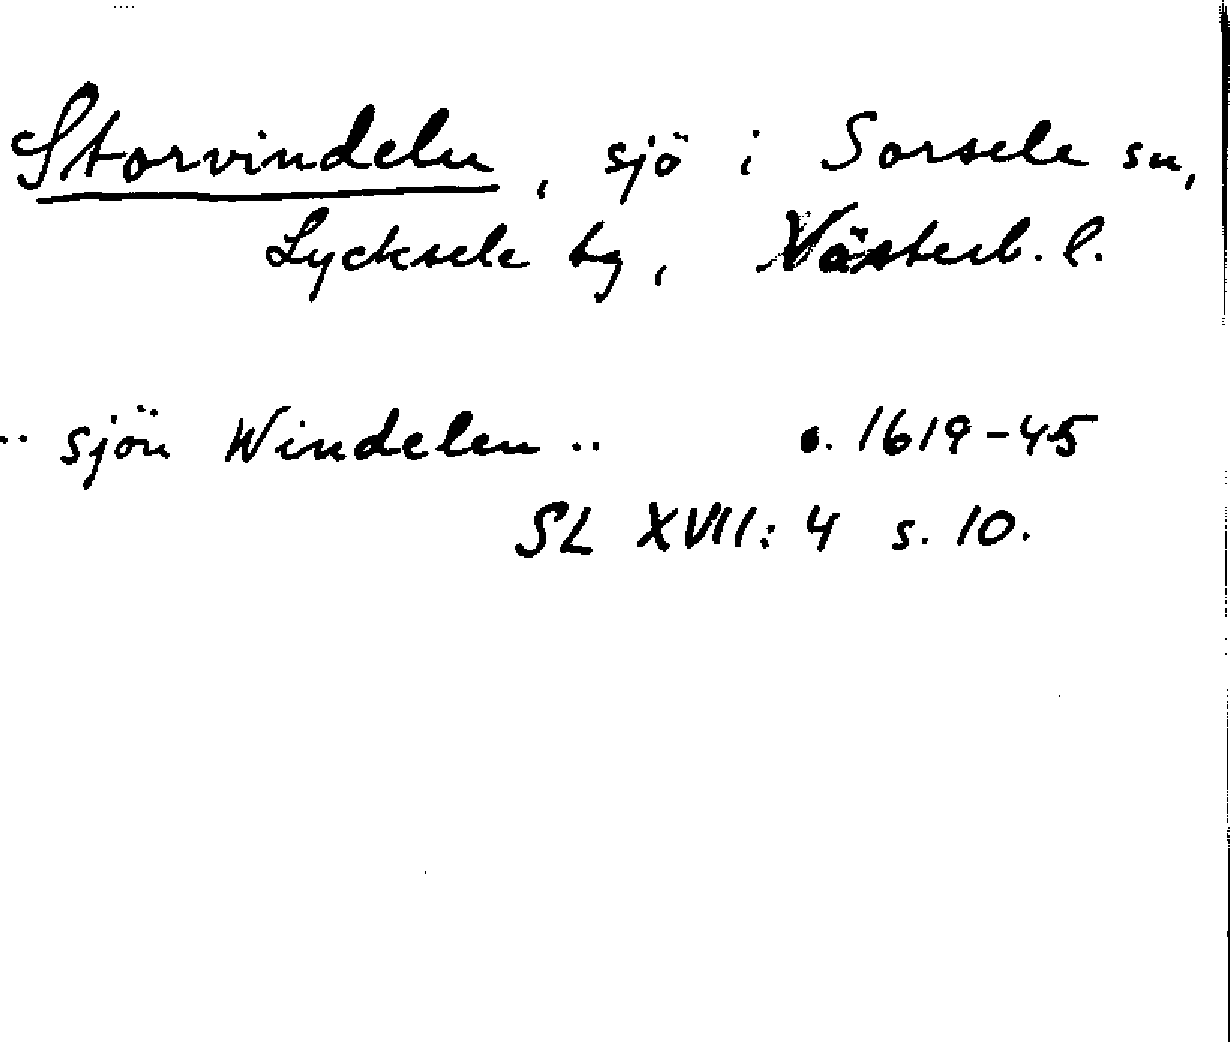 Storvindeln, sjö i Sorsele sn,
Lycksele tg, Västerb. l.
.. sjön Windelen .. o. 1619-45
SL XVII: 4 s. 10.